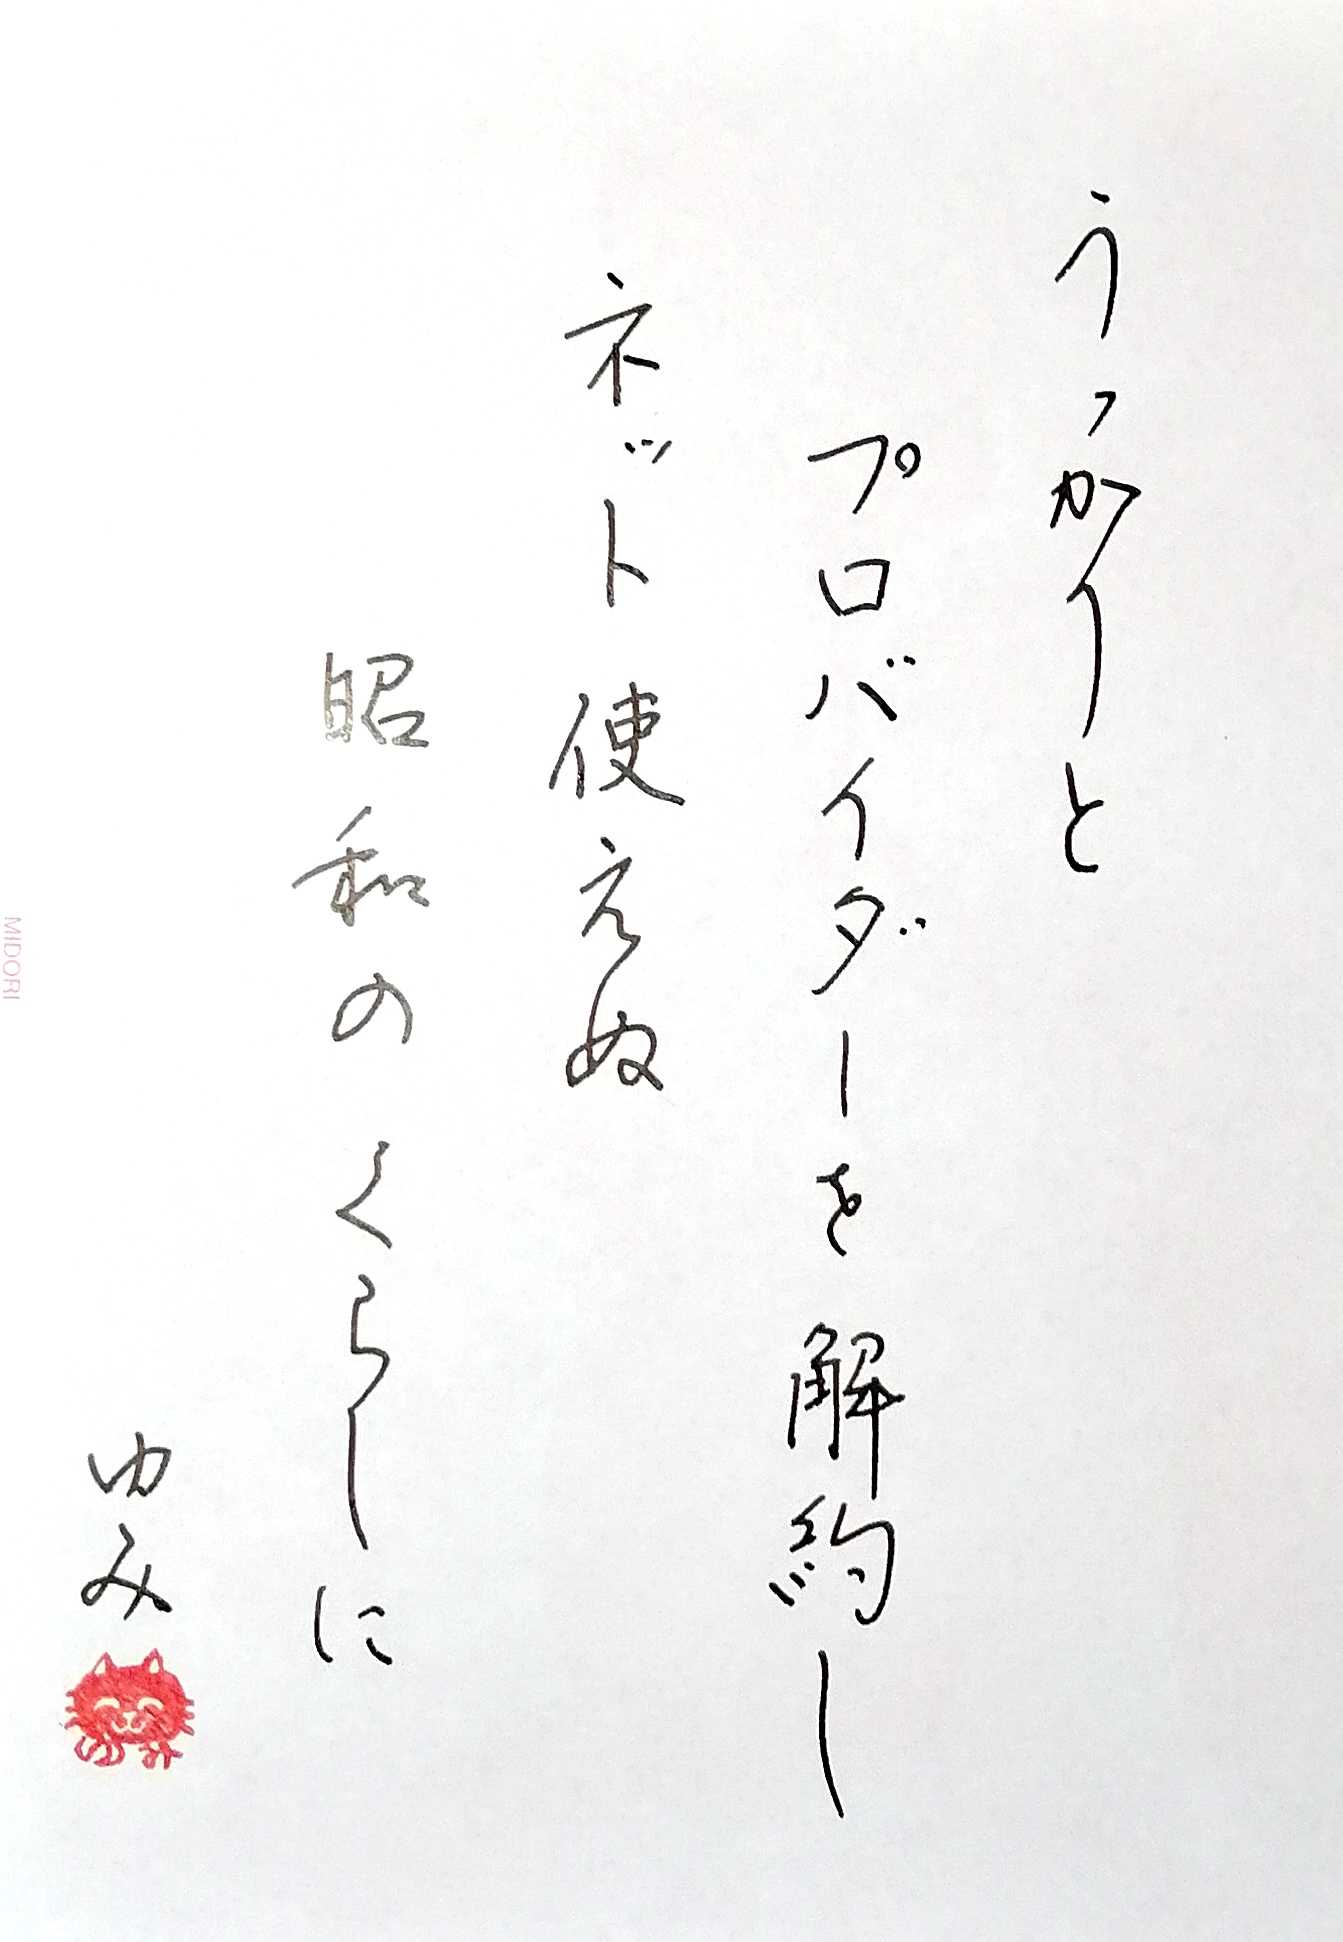 うっかりと
プロバイダーを解約し
ネット使えぬ
昭和のくらしに
ゆみ
MIDORI